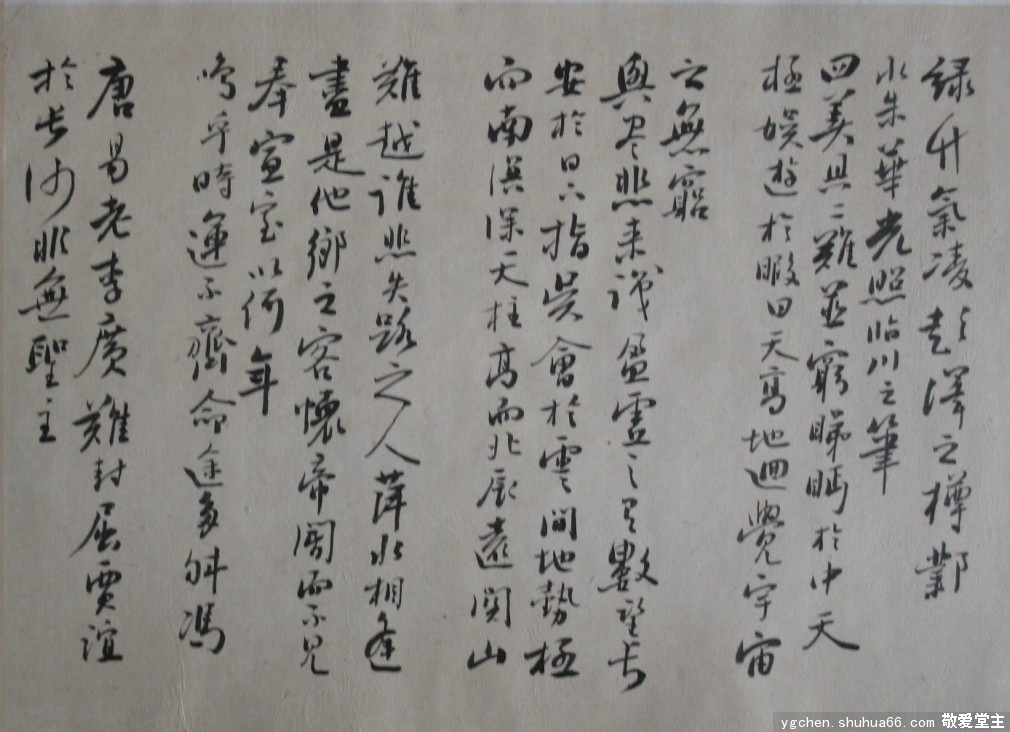 綠竹氣凌彭澤之樽鄴
水朱華光照臨川之筆
四美具二難並窮睇眄於中天
極娛遊於暇日天高地迥覺宇宙
之無窮
興盡悲來識盈虛之有數望長
安於日下指吳會於雲間地勢極
而南溟深天柱高而北辰遠關山
難越誰悲失路之人萍水相逢
盡是他鄉之客懷帝閽而不見
奉宣室以何年
嗚乎時運不齊命途多舛馮
唐易老李廣難封屈賈誼
於長沙非無聖主
ygchen.shuhua66.com 敬爱堂主